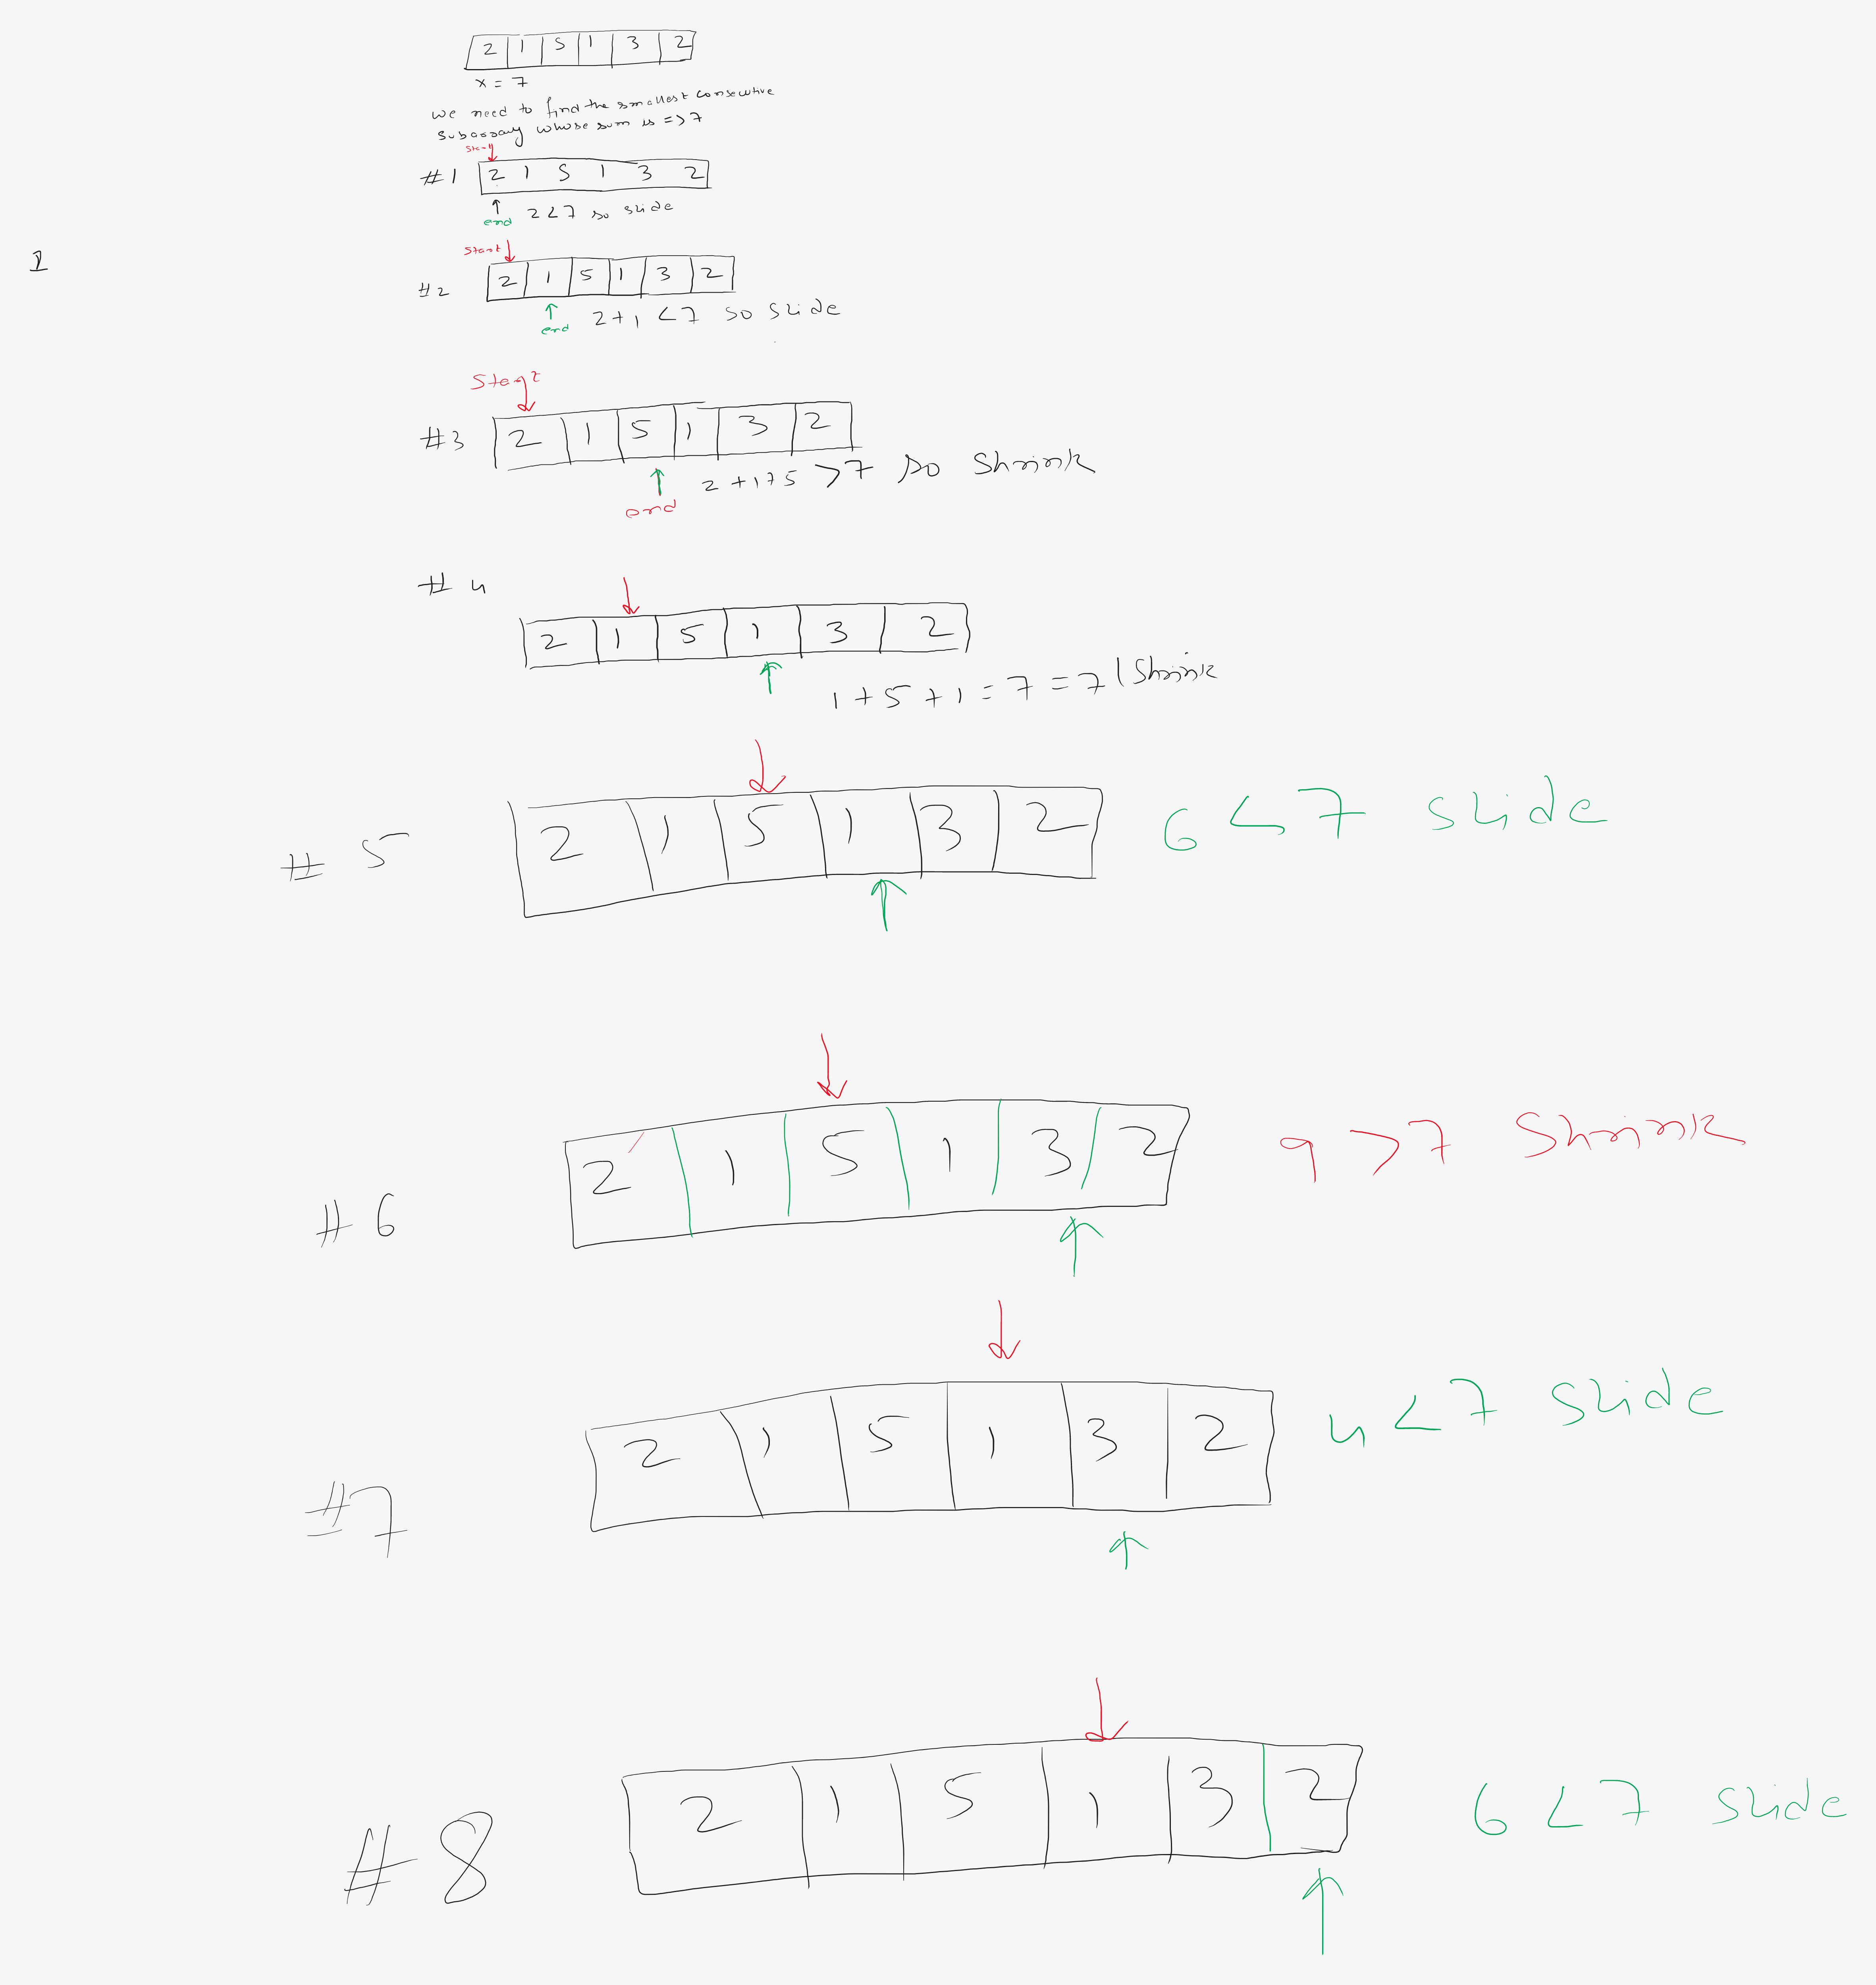 2 1 5 1 3 2
x = 7
we need to find the smallest consecutive
subarray whose sum is => 7
Start
#1 2 1 5 1 3 2
end 2<7 so slide
Start
1
#2 2 1 5 1 3 2
end 2+1 <7 so slide
Start
#3 2 1 5 1 3 2
2+1+5 >7 so shrink
end
#4
2 1 5 1 3 2
1+5+1=7=7 | Shrink
#5 2 1 5 1 3 2 6<7 slide
#6 2 1 5 1 3 2 9>7 Shrink
#7 2 1 5 1 3 2 4<7 slide
#8 2 1 5 1 3 2 6<7 slide